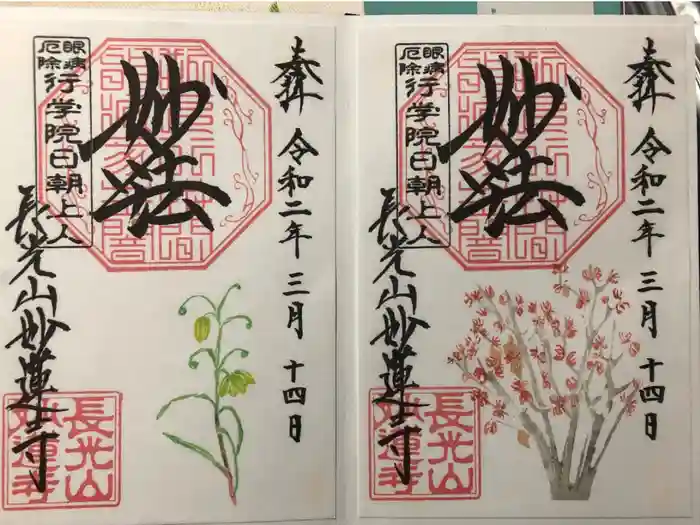 奉拝 令和二年 三月 十四日
妙法
眼病
厄除
行学院日朝上人
長光山妙蓮寺
長光山
妙蓮寺
奉拝 令和二年 三月 十四日
妙法
眼病
厄除
行学院日朝上人
長光山妙蓮寺
長光山
妙蓮寺